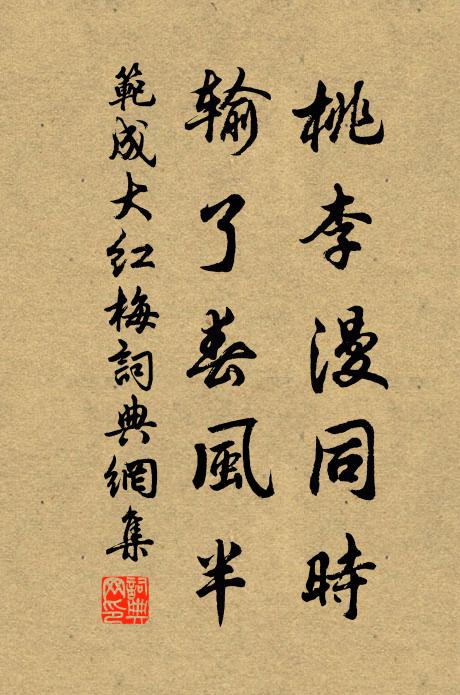 桃李漫同時
輸了春風半
範成大紅梅詞典網集
詞典網印